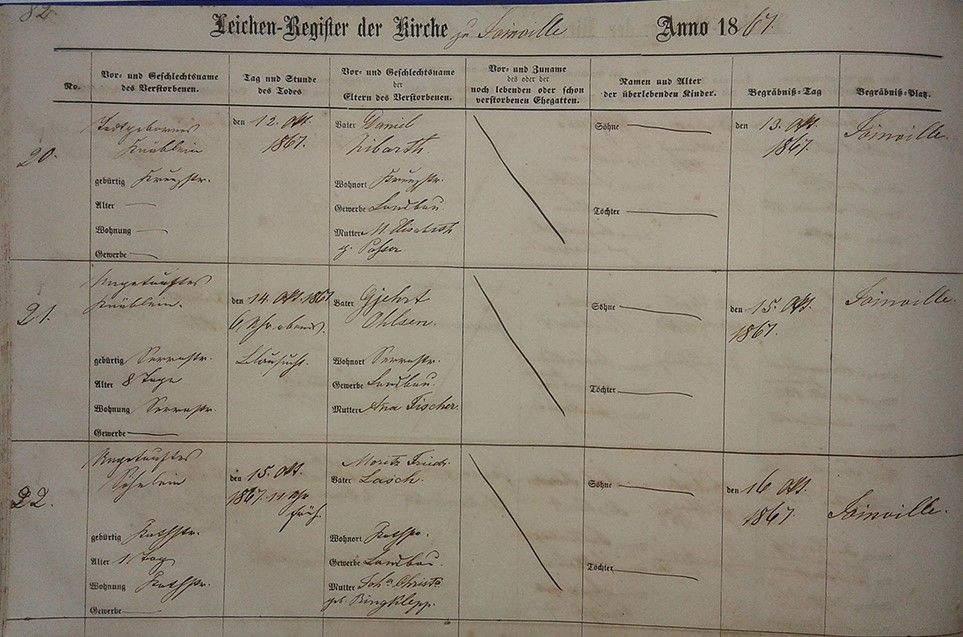 82.
Leichen-Register der Kirche zu Joinville Anno 1867
No.
Vor- und Geschlechtsname
des Verstorbenen.
Tag und Stunde
des Todes
Vor- und Geschlechtsname
der
Eltern des Verstorbenen.
Vor- und Zuname
des oder der
noch lebenden oder schon
verstorbenen Ehegatten.
Namen und Alter
der überlebenden Kinder.
Begräbniß-Tag
Begräbniß-Platz.
20.
Todtgebornes
Knäblein
gebürtig
Alter
Wohnung
Gewerbe
den 12. Okt.
1867.
Vater Daniel
Zibarth
Wohnort
Gewerbe Landbau.
Mutter Elisabeth
Söhne
Töchter
den 13. Okt.
1867.
Joinville.
21.
Ungetauftes
Knäblein.
gebürtig Serrastr.
Alter 8 Tage
Wohnung Serrastr.
Gewerbe
den 14. Okt. 1867
6 Uhr abends.
Vater
Ohlsen.
Wohnort Serrastr.
Gewerbe Landbau.
Mutter Ana Fischer.
Söhne
Töchter
den 15. Okt.
1867.
Joinville.
22.
Ungetauftes
gebürtig
Alter 1 Tag
Wohnung
Gewerbe
den 15. Okt.
1867. 11 Uhr
früh.
Moritz Friedr.
Vater Lasch.
Wohnort
Gewerbe Landbau.
Mutter Joh. Christ.
geb. Ringklepp.
Söhne
Töchter
den 16 Okt.
1867.
Joinville.